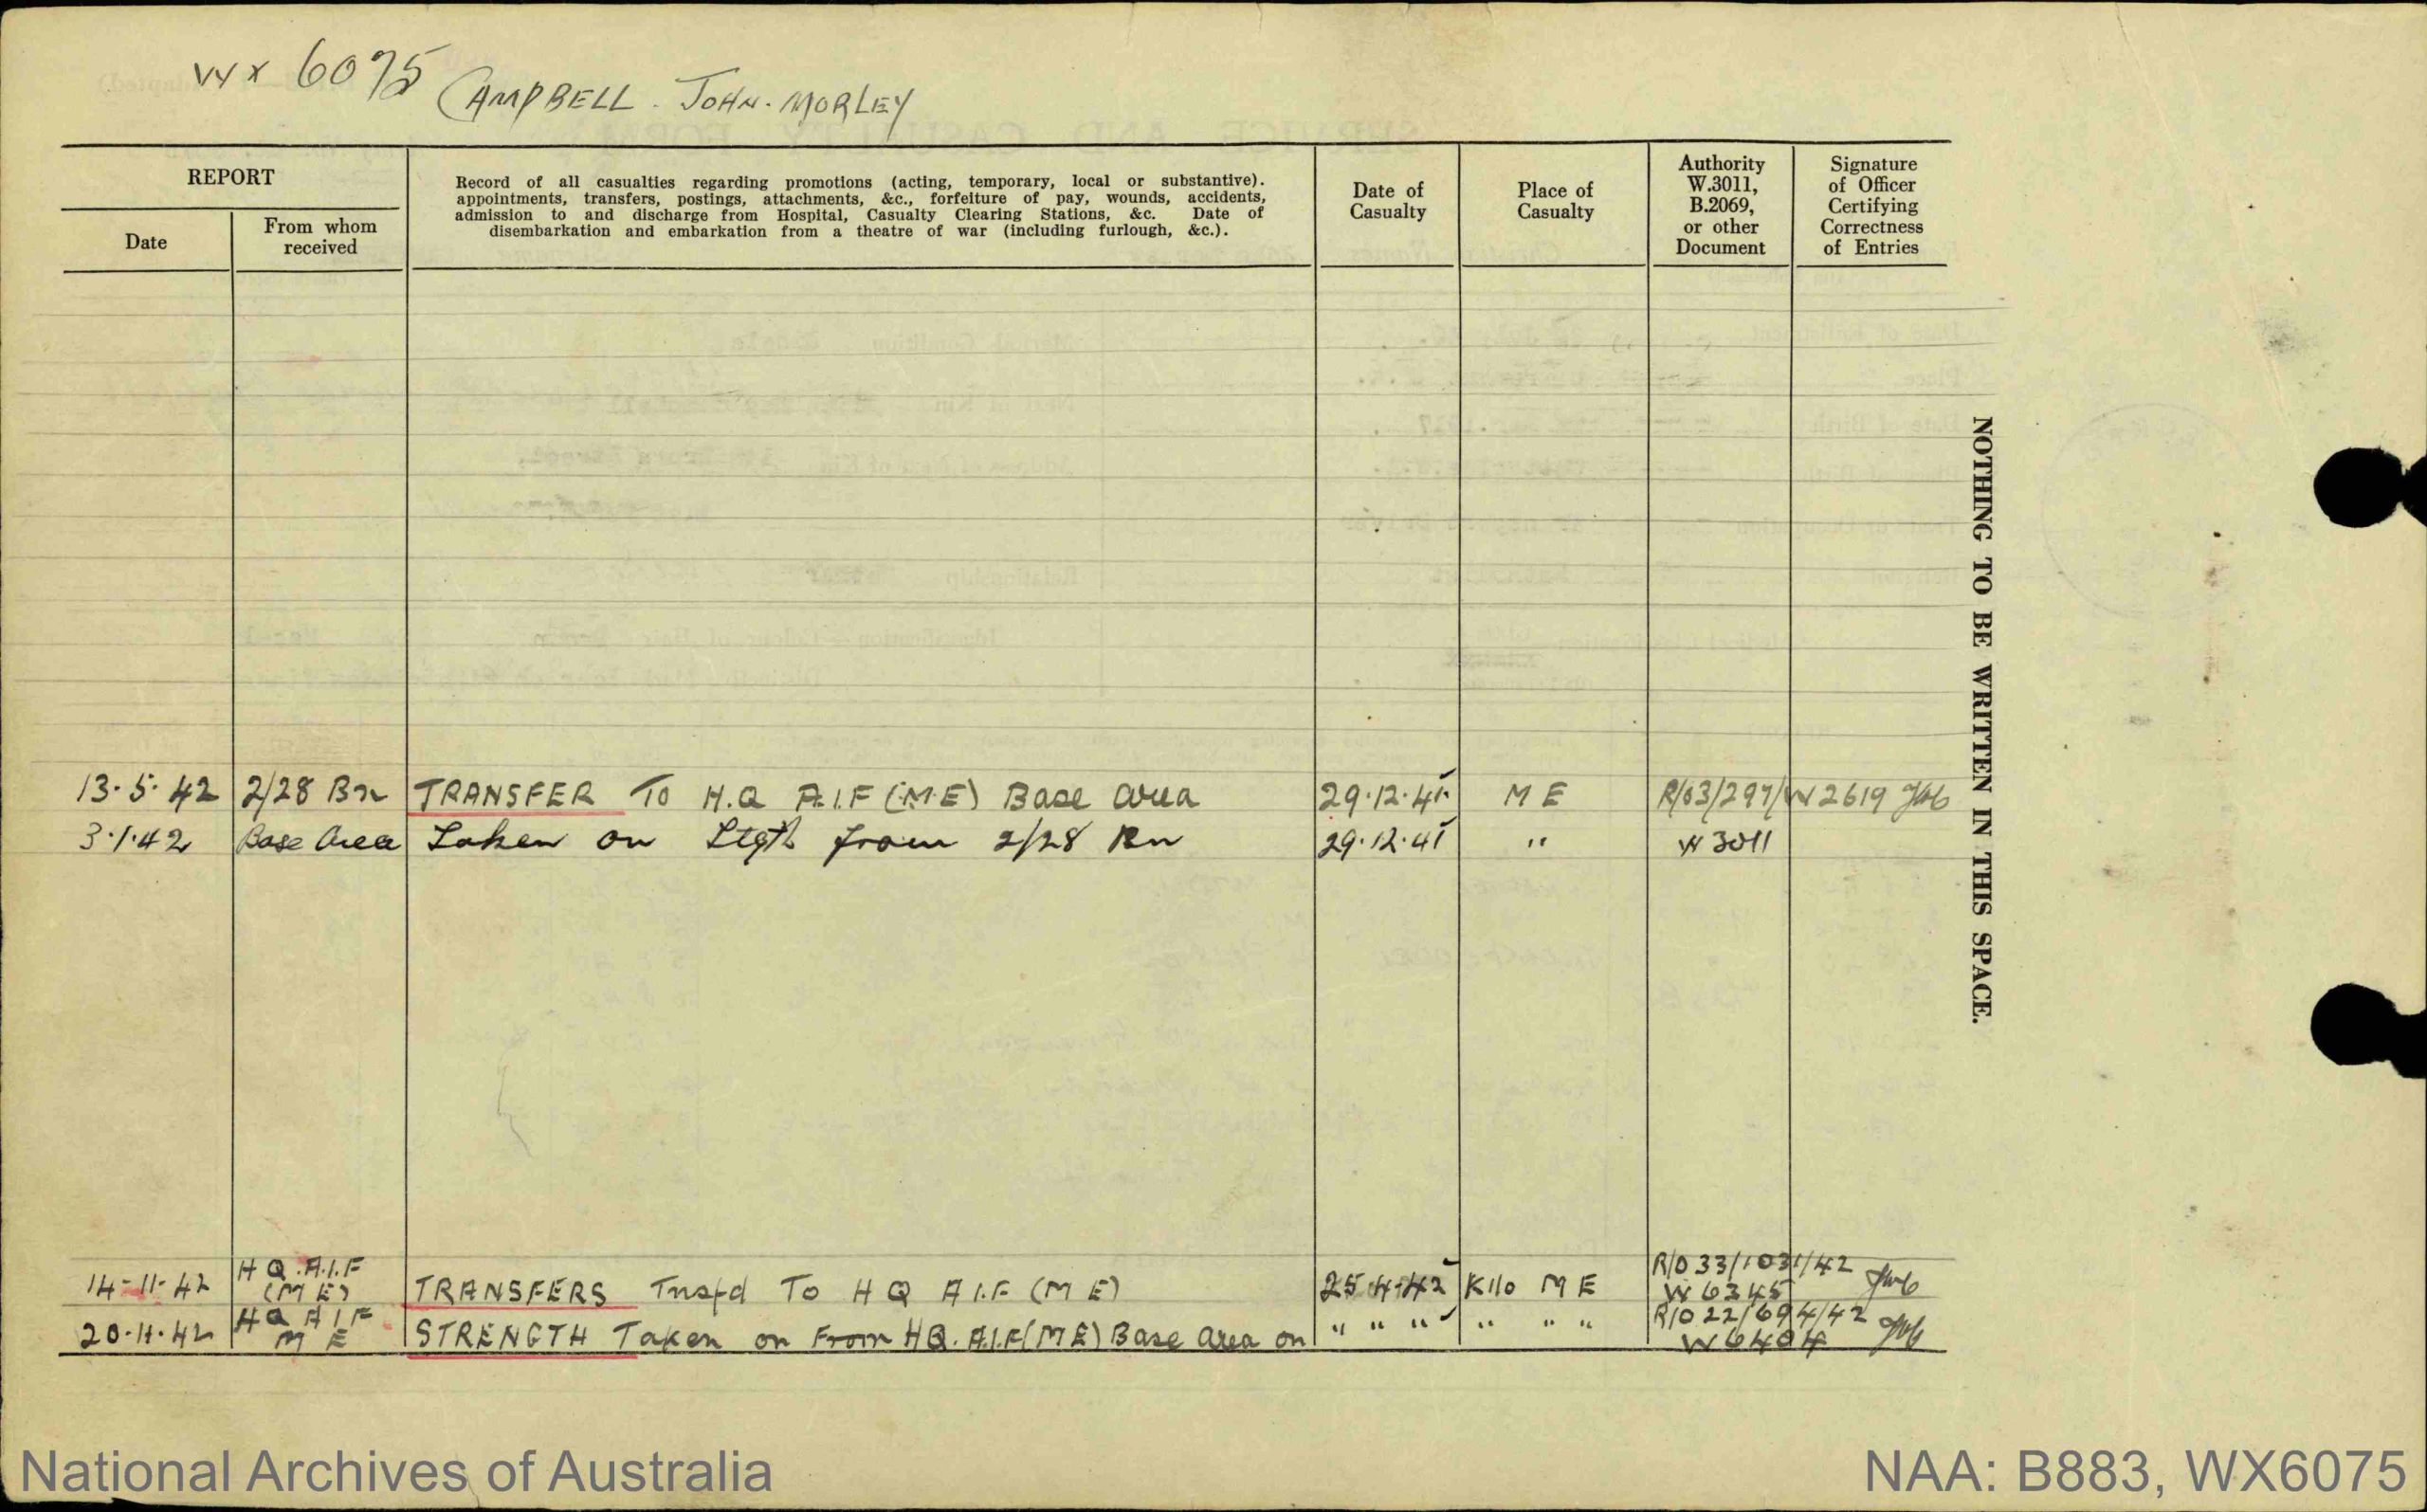 WX 6075 CAMPBELL. JOHN. MORLEY
REPORT
Date
From whom received
Record of all casualties regarding promotions (acting, temporary, local or substantive).
appointments, transfers, postings, attachments, &c., forfeiture of pay, wounds, accidents,
admission to and discharge from Hospital, Casualty Clearing Stations, &c. Date of
disembarkation and embarkation from a theatre of war (including furlough, &c.).
Date of Casualty
Place of Casualty
Authority W.3011, B.2069, or other Document
Signature of Officer Certifying Correctness of Entries
13.5.42 2/28 Bn TRANSFER TO H.Q A.I.F (M.E) Base Area 29.12.41 M E R/03/297/W2619
3.1.42 Base Area Taken on Stgth from 2/28 Bn 29.12.41 " W 3011
14-11-42 H Q.A.I.F (M E) TRANSFERS Tnsfd To H Q A.I.F (M E) 25.4.42 K110 M E R/O 33/1031/42 W 6345
20.11.42 H Q A I F M E STRENGTH Taken on From HQ. A.I.F (M E) Base Area on " " " " " " R/O 22/694/42 W6404
NOTHING TO BE WRITTEN IN THIS SPACE.
National Archives of Australia
NAA: B883, WX6075